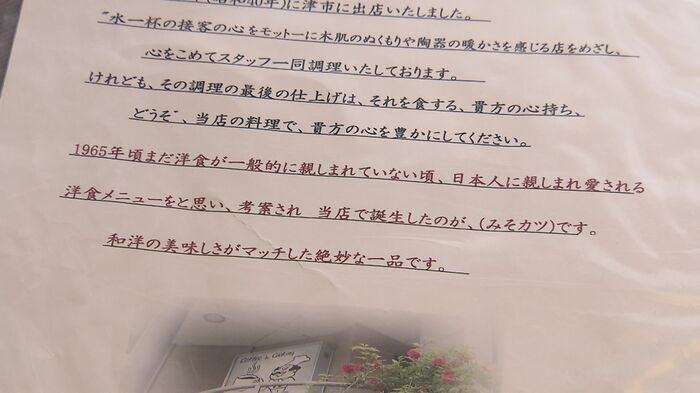 (昭和40年)に津市に出店いたしました。
"水一杯の接客の心をモットーに木肌のぬくもりや陶器の暖かさを感じる店をめざし、
心をこめてスタッフ一同調理いたしております。
けれども、その調理の最後の仕上げは、それを食する、貴方の心持ち、
どうぞ、当店の料理で、貴方の心を豊かにしてください。
1965年頃まだ洋食が一般的に親しまれていない頃、日本人に親しまれ愛される
洋食メニューをと思い、考案され 当店で誕生したのが、(みそカツ)です。
和洋の美味しさがマッチした絶妙な一品です。
Coffee & Cooking